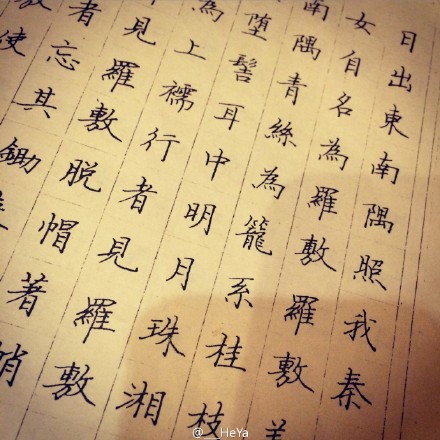 日出東南隅照我秦
女自名為羅敷羅敷
南隅青絲為籠系桂枝
堕髻耳中明月珠湘
為上襦行者見羅敷
見羅敷脱帽著帩
者忘其鋤
使
@__HeYa